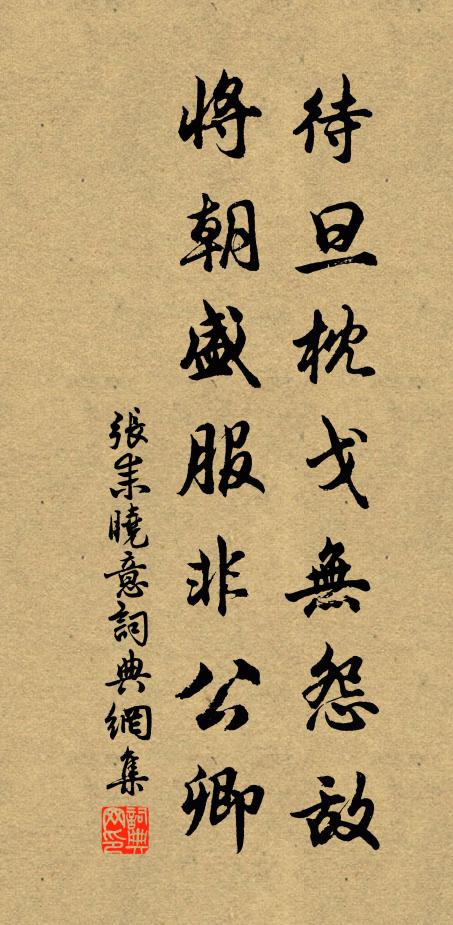 待旦枕戈無怨敌
將朝盛服非公卿
張耒曉意詞典網集
詞典网印